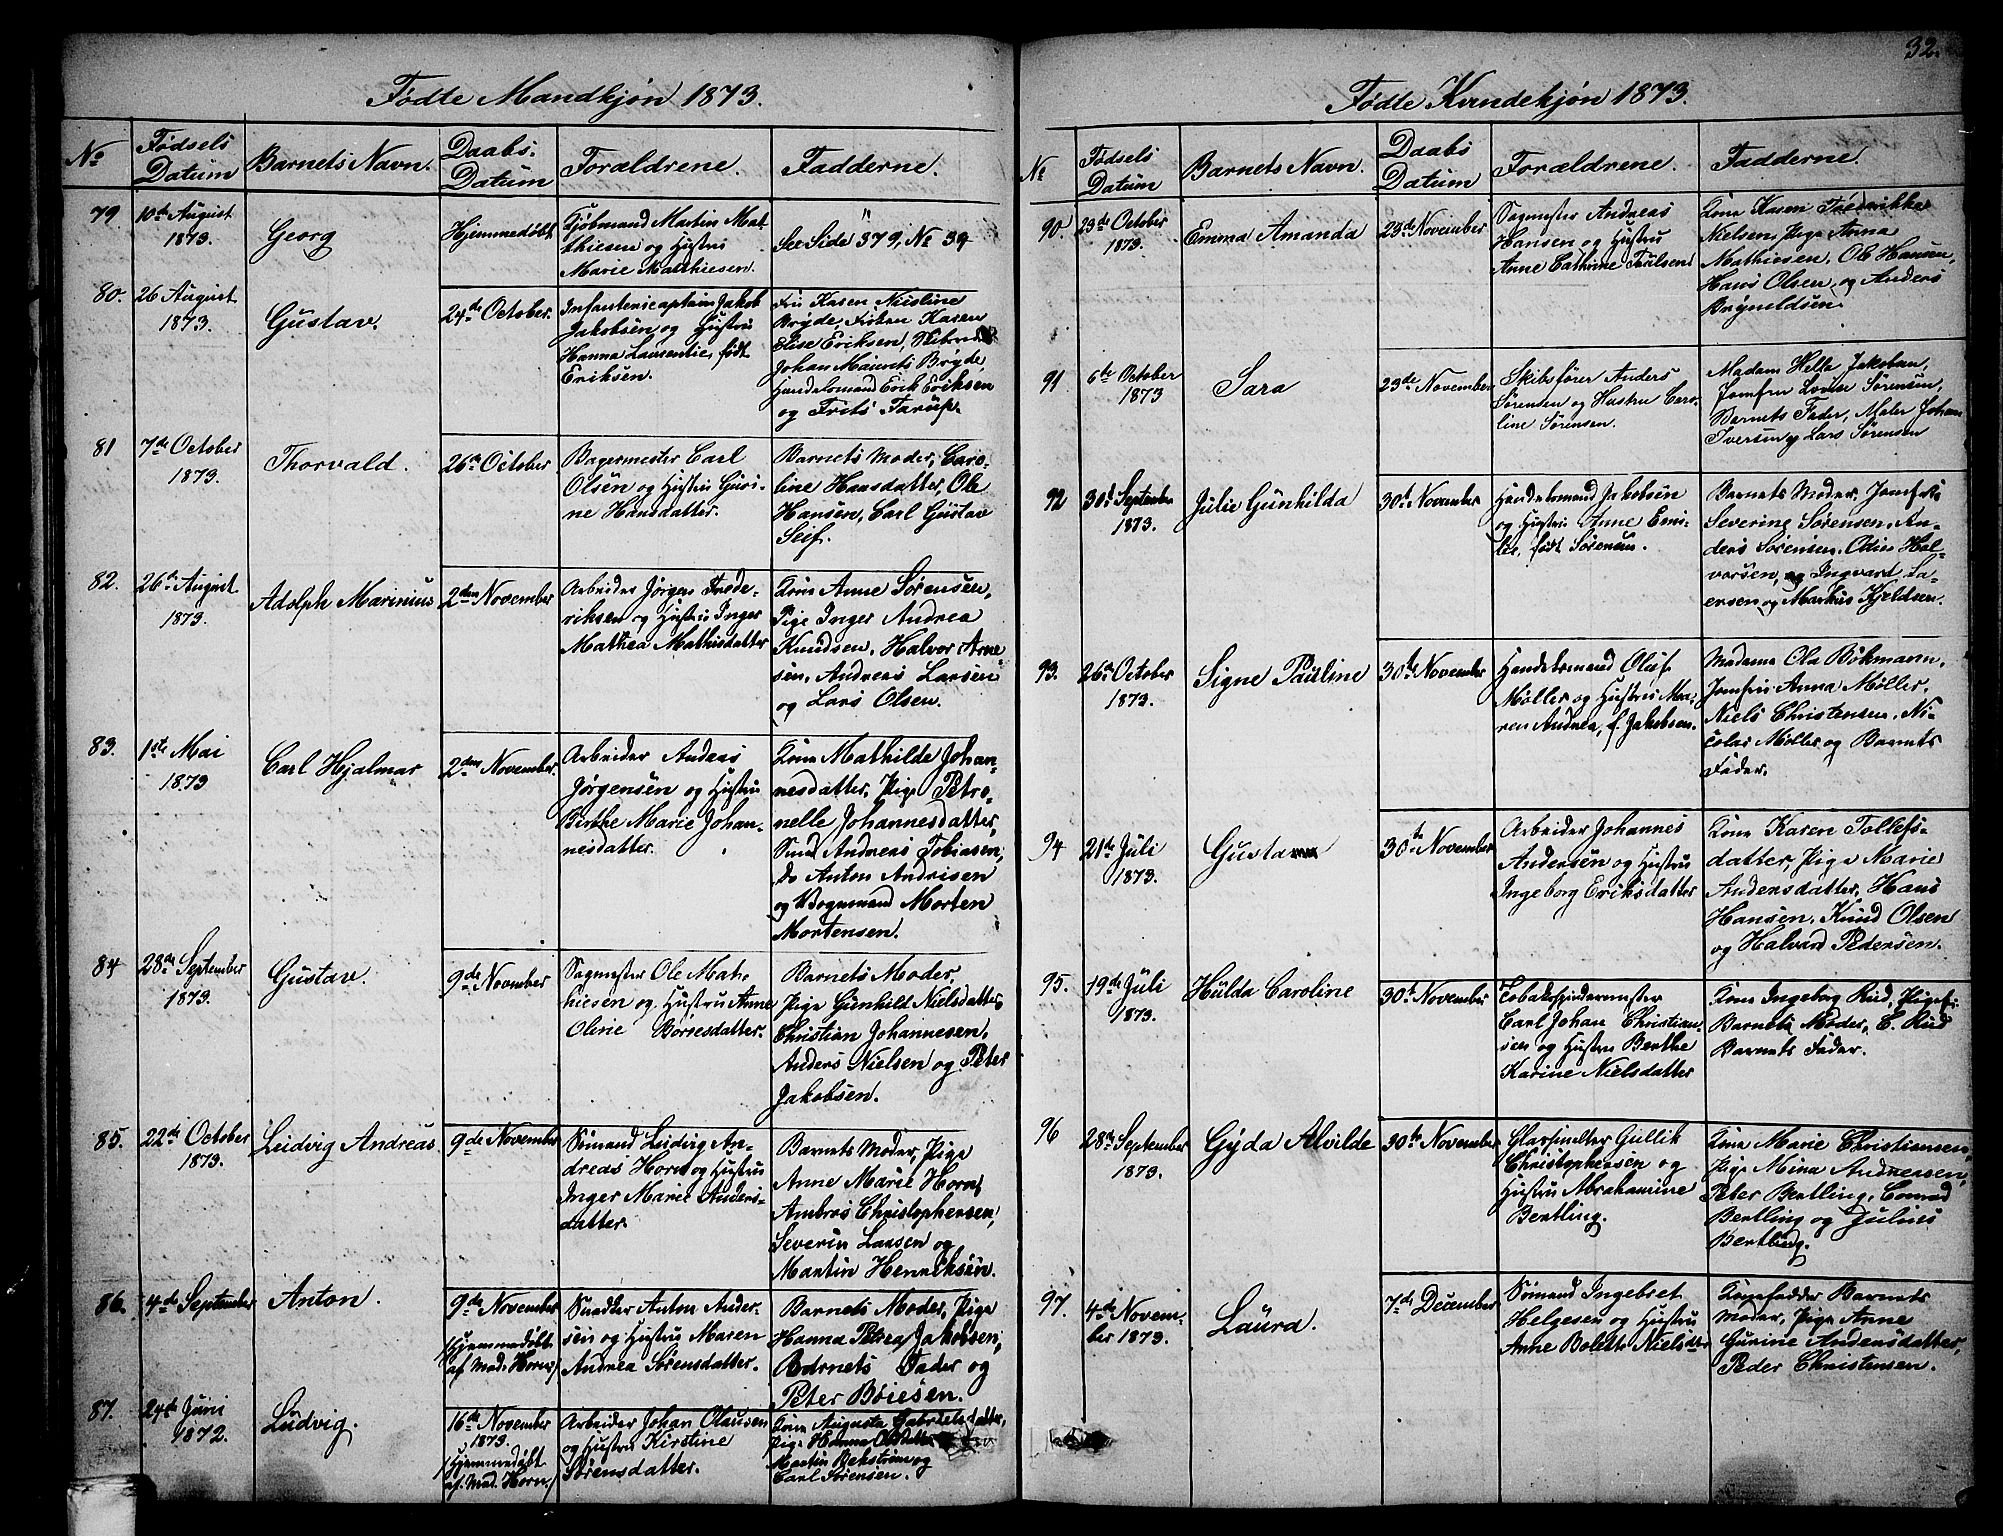 32.
Fødte Mandkjøn 1873.
No
Fødsels Datum
Barnets Navn.
Daabs. Datum
Forældrene.
Fadderne.
79
10de August
1873.
Georg
Hjemmedøbt
Kjøbmand Martin Mat-
thiesen og Hustru
Marie Matthiesen.
See Side 379, No 39
80.
26 August
1873.
Gustav.
24de October.
Infantericaptain Jakob
Jakobsen og Hustru
Hanna Laurentie, født
Eriksen.
Fru Karen Nicoline
Bryde, Frøken Karen
Elise Eriksen,
Johan Maurits Bryde,
Handelsmand Erik Eriksen
og Frits Tarup.
81
7de October
1873.
Thorvald.
26de October
Bagermester Carl
Olsen og Hustru Guri-
ne Hansdatter.
Barnets Moder, Caro-
line Hansdatter, Ole
Hansen, Carl Gustav
Seif.
82.
26de August
1873.
Adolph Marinius
2den November
Arbeider Jørgen Frede-
riksen og Hustru Inger
Mathea Mathisdatter
Kone Anne Sørensen,
Pige Inger Andrea
Knudsen, Halvor Arne-
sen, Andreas Larsen
og Lars Olsen.
83.
1ste Mai
1873
Carl Hjalmar
2den November.
Arbeider Andreas
Jørgensen og Hustru
Birthe Marie Johan-
nesdatter.
Kone Mathilde Johan-
nesdatter, Pige Petro-
nelle Johannesdatter,
Smed Andreas Tobiasen,
do Anton Andrisen
og Vognmand Morten
Mortensen.
84
28de September
1873.
Gustav.
9de November
Sagmester Ole Mat-
hiesen og Hustru Anne
Oline Børresdatter.
Barnets Moder
Pige Gunhild Nielsdatter,
Christian Johannesen,
Anders Nielsen og Peter
Jakobsen.
85.
22de October
1873.
Ludvig Andreas.
9de November
Sømand Ludvig An-
dreas Horn og Hustru
Inger Marie Anders-
datter.
Barnets Moder, Pige
Anne Marie Horn,
Ambros Christophersen,
Severin Larsen og
Martin Henriksen.
86.
4de September
Anton.
9de November
(Hjemmedøbt
af Mad. Horn)
Snedker Anton Ander-
sen og Hustru Maren
Andrea Sørensdatter.
Barnets Moder, Pige
Hanna Petrea Jakobsen,
Barnets Fader og
Peter Boiesen.
87.
24de Juni
1872.
Ludvig.
16de November
1873.
(Hjemmedøbt
af Mad. Horn)
Arbeider Johan Olausen
og Hustru Kirstine
Sørensdatter.
Kone Augusta Gabrielsdatter,
Pige Hanna Olsdatter
Martin Bekstrøm og
Carl Sørensen.
Fødte Kvindekjøn 1873.
No
Fødsels Datum
Barnets Navn.
Daabs Datum
Forældrene.
Fadderne.
90.
23de October
1873.
Emma Amanda
23de November
Sagmester Andreas
Hansen og Hustru
Anne Cathrine Paulsen
Kone Karen Frederikke
Nielsen, Pige Anna
Mathiesen, Ole Hansen,
Hans Olsen og Anders
Brynildsen.
91
6te October
1873
Sara
23de November
Skibsfører Anders
Sørensen og Hustru Caro-
line Sørensen.
Madam Helle Jakobsen,
Jomfru Lovise Sørensen,
Barnets Fader, Maler Johan
Iversen og Lars Sørensen
92
30te September
1873.
Julie Gunhilda
30te November
Handelsmand Jakobsen
og Hustru Anne Emi-
lie, født Sørensen.
Barnets Moder, Jomfru
Severine Sørensen, An-
ders Sørensen, Odin Hal-
vorsen, og Ingvart La-
ersen og Markus Kjeldsen.
93.
26de October
1873.
Signe Pauline
30te November
Handelsmand Oluf
Møller og Hustru Ma-
ren Andrea, f. Jakobsen.
Madame Ola Bøkmann,
Jomfru Anna Møller,
Niels Christensen, Ni-
colai Møller og Barnets
Fader.
94
21de Juli
1873.
Gusta
30te November
Arbeider Johannes
Andersen og Hustru
Ingeborg Eriksdatter
Kone Karen Tollefs-
datter, Pige Marie
Andersdatter, Hans
Hansen, Knud Olsen
og Halvard Pedersen.
95.
19de Juli
1873.
Hulda Caroline
30te November
Tobakspindermester
Carl Johan Christian-
sen og Hustru Berthe
Karine Nielsdatter
Kone Ingeborg Rud,
Barnets Moder, C. Rud
Barnets Fader.
96
28de September
1873.
Gyda Alvilde
30te November
Glassmelter Gullik
Christophersen og
Hustru Abrahamine
Bertling.
Kone Marie Christiansen,
Pige Mina Andresen,
Peter Bertling, Conrad
Bertling og Julius
Bertling.
97.
4de Novem-
ber 1873.
Laura.
7de December
Sømand Ingebret
Helgesen og Hustru
Anne Bolette Nielsdtr
Kone Barnets
Moder, Pige Anne
Gurine Andersdatter,
Peder Christensen.